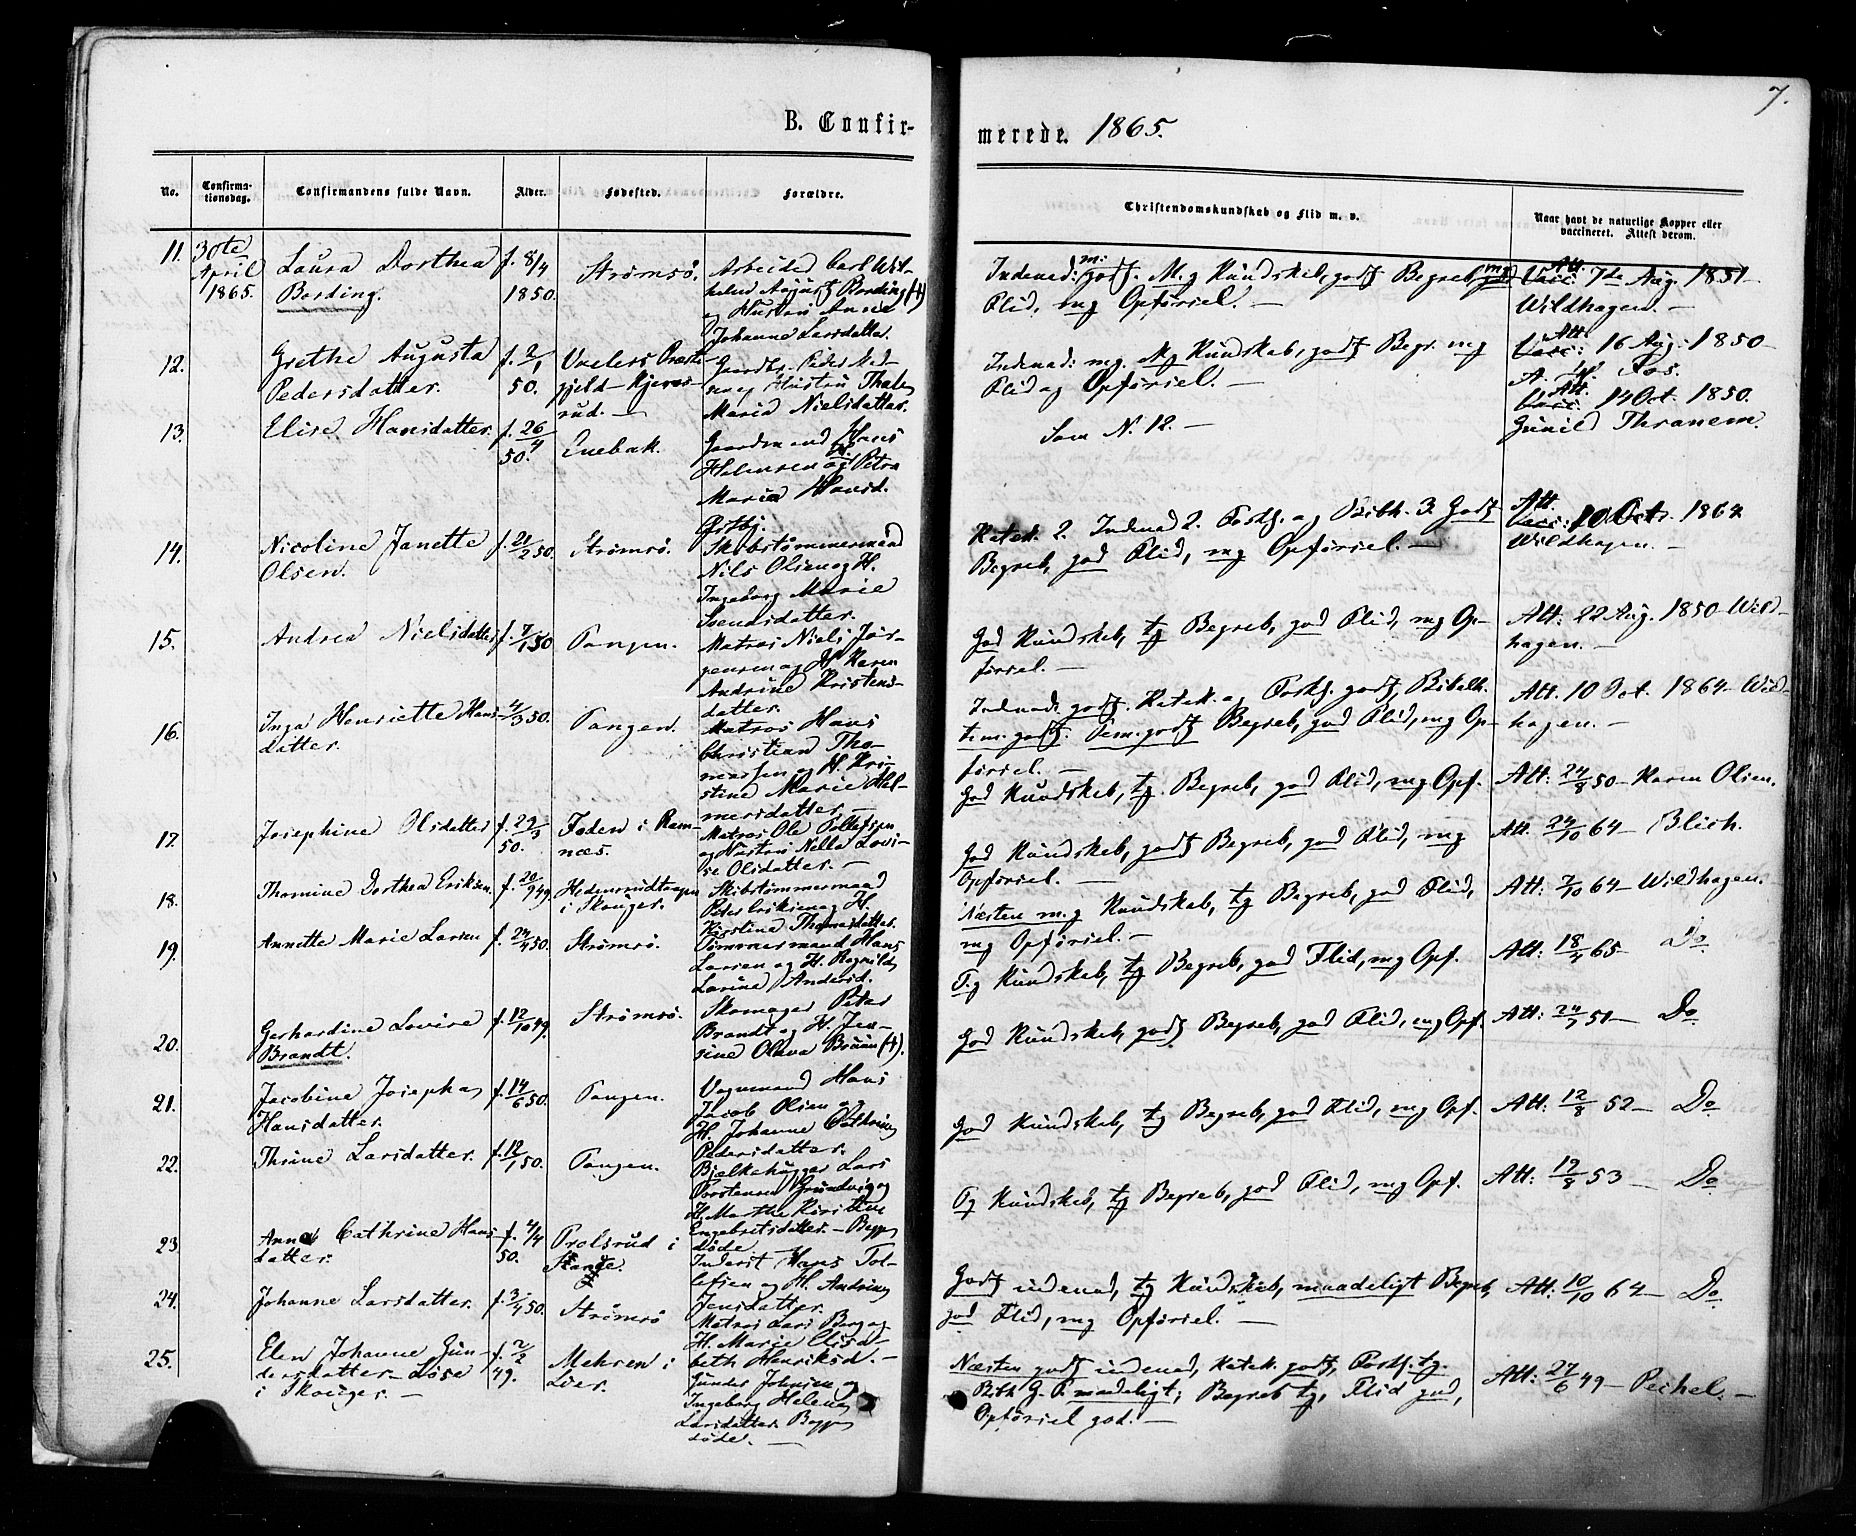 7.
B. Confirmerede. 1865.
No.
Confirmationsdag.
Confirmandens fulde Navn.
Alder.
Fødested.
Forældre.
Christendomskundskab og Flid m. v.
Naar havt de naturlige Kopper eller
vaccineret. Attest derom.
11. 30te April 1865.
Laura Dorthea
Bording.
f. 8/4
1850.
Strømsø.
Arbeider Carl Wil-
helm August Bording (†)
og Hustru Anne
Johanne Larsdatter.
Indenad: godt. M.g Kundskab, godt Begreb, mg
Flid, mg Opførsel. —
Att. 7de Aug. 1851—
Wildhagen. —
12.
Grethe Augusta
Pedersdatter.
f. 2/1
50.
Vaalers Præste-
gjeld
Hustru Thale
Maria Nielsdatter.
Indenad: mg. Mg Kundskab, godt Begr. mg
Flid og Opførsel. —
Att. 16 Aug. 1850—
13.
Elise Hansdatter.
f. 26/4
50.
Enebak.
Gaardmand Hans
Petra
Maria Hansd.
Østby.
Som N. 12. —
Att. 14 Oct. 1850.
Gunild Thranem.
14.
Nicoline Janette
Olsen.
f. 21/2 50.
Strømsø.
Skibstømmermand
Nils Olsen og H.
Ingeborg Marie
Svendsdatter.
Katek. 2. Indenad 2. Forkl. og Bibh. 3. Godt
Begreb, god Flid, mg Opførsel. —
Att. 10 Oct. 1864
Wildhagen. —
15.
Andrea Nielsdatter
f. 7/1 50
Tangen.
Matros Niels Jør-
gensen og H. Karen
Andrine Kristens-
datter.
God Kundskab, tg Begreb, god Flid, mg Op-
førsel. —
Att: 22 Aug. 1850 Wild-
hagen. —
16.
Inga Henriette Hans-
datter.
f. 4/3 50.
Tangen.
Matros Hans
Christian Tho-
massen og H. Kri-
stine Marie Hal-
Indenad: godt. Katek. og Forkl. godt, Bibelh.
tem. godt. Tem. godt Begreb, god Flid, mg Op-
førsel. —
Att. 10 Oct. 1864 Wild-
hagen. —
17.
Josephine Olsdatter
f. 29/3
50.
Foden i Ram-
næs.
Matros Ole Tollefsen
og Hustru Nella Lovi-
se Olsdatter. —
God Kundskab, tg Begreb, god Flid, mg Opf.
Att: 24/8 50 Karen Olsen.
18.
Thomine Dorthea Eriksen.
f. 20/9 49.
i Skouger.
Skibstømmermand
Peder Eriksen og H.
Kirstine Thomasdatter.
God Kundskab, godt Begreb, god Flid, mg
Opførsel. —
Att. 24/10 64— Blich.
19.
Annette Marie Larsen
f. 24/4 50.
Strømsø.
Tømmermand Hans
Larsen og H. Ragnild
Larine Andersd.
Næsten m.g Kundskab, tg Begreb, god Flid,
mg Opførsel. —
Att: 7/10 64— Wildhagen.
T.g Kundskab, tg Begreb, god Flid, mg Opf.
Att: 18/4 65— Do
20.
Gerhardine Lovise
Brandt.
f. 12/10 49.
Strømsø.
Skomager Peter
Brandt og H. Jen-
sine Olava Bruun (†).
God Kundskab, godt Begreb, god Flid, mg Opf.
Att: 24/7 51— Do
21.
Jacobine Josepha
Hansdatter.
f. 14/6 50.
Tangen.
Vognmand Hans
Jacob Olsen og
H. Johanne Cathrine
Pedersdatter.
God Kundskab, tg Begreb, god Flid, mg Opf.
Att: 12/8 52— Do
22.
Thrine Larsdatter.
f. 12/1 50.
Tangen.
Bjelkehugger Lars
Torstensen Grundvig og
H. Marthe Kirstine
Engebretsdatter. — Begge
døde.
Tg Kundskab, tg Begreb, god Flid, mg Opf.
Att: 12/8 53— Do
23.
Anne Cathrine Hans-
datter.
f. 4/4
50.
Prolsrud i
Stange.
Inderst Hans Tol-
lefsen og H. Andrine
Jensdatter.
Godt indenad, tg Kundskab, maadeligt Begreb,
god Flid, mg Opførsel. —
Att: 10/10 64— Do
24.
Johanne Larsdatter.
f. 3/4 50.
Strømsø
Matros Lars Berg og
H. Marie Elisa-
beth Henriksd. —
25.
Elen Johanne Gun-
dersdatter
i Skouger. —
f. 2/2
49.
Mehren i
Lier.
Gunder Johnsen og
Ingeborg Helene
Larsdatter. Begge
døde. —
Næsten godt indenad, Katek. godt, Forkl. tg.
Bibh. maadeligt; Begreb tg, Flid god,
Opførsel god. —
Att: 27/6 49— Pechel. —